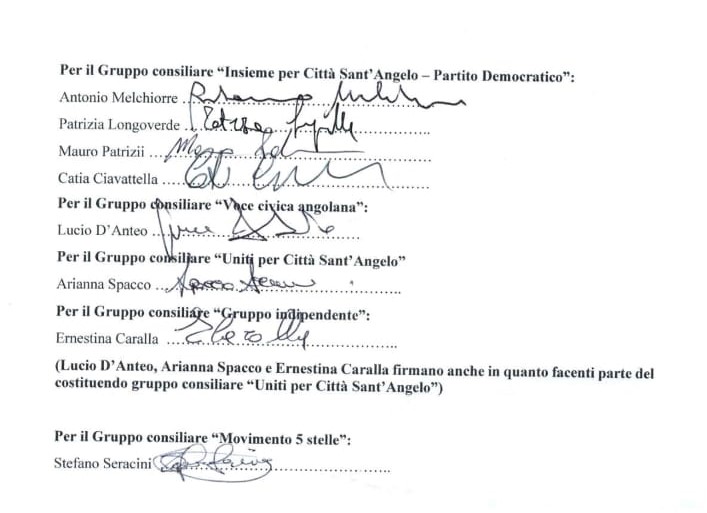 Per il Gruppo consiliare “Insieme per Città Sant’Angelo – Partito Democratico”:
Antonio Melchiorre ..............................................
Patrizia Longoverde ..............................................
Mauro Patrizii ..............................................
Catia Ciavattella ..............................................
Per il Gruppo consiliare “Voce civica angolana”:
Lucio D’Anteo ..............................................
Per il Gruppo consiliare “Uniti per Città Sant’Angelo”
Arianna Spacco ..............................................
Per il Gruppo consiliare “Gruppo indipendente”:
Ernestina Caralla ..............................................
(Lucio D’Anteo, Arianna Spacco e Ernestina Caralla firmano anche in quanto facenti parte del
costituendo gruppo consiliare “Uniti per Città Sant’Angelo”)
Per il Gruppo consiliare “Movimento 5 stelle”:
Stefano Seracini ..............................................